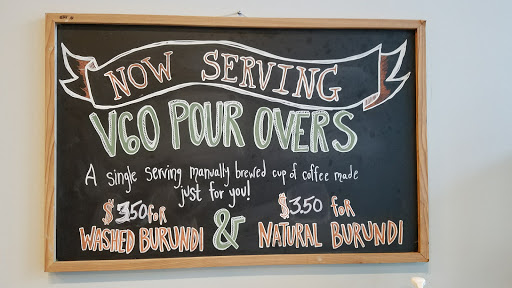 NOW SERVING
V60 POUR OVERS
A single serving manually brewed cup of coffee made
just for you!
$3.50 for $3.50 for
WASHED BURUNDI & NATURAL BURUNDI